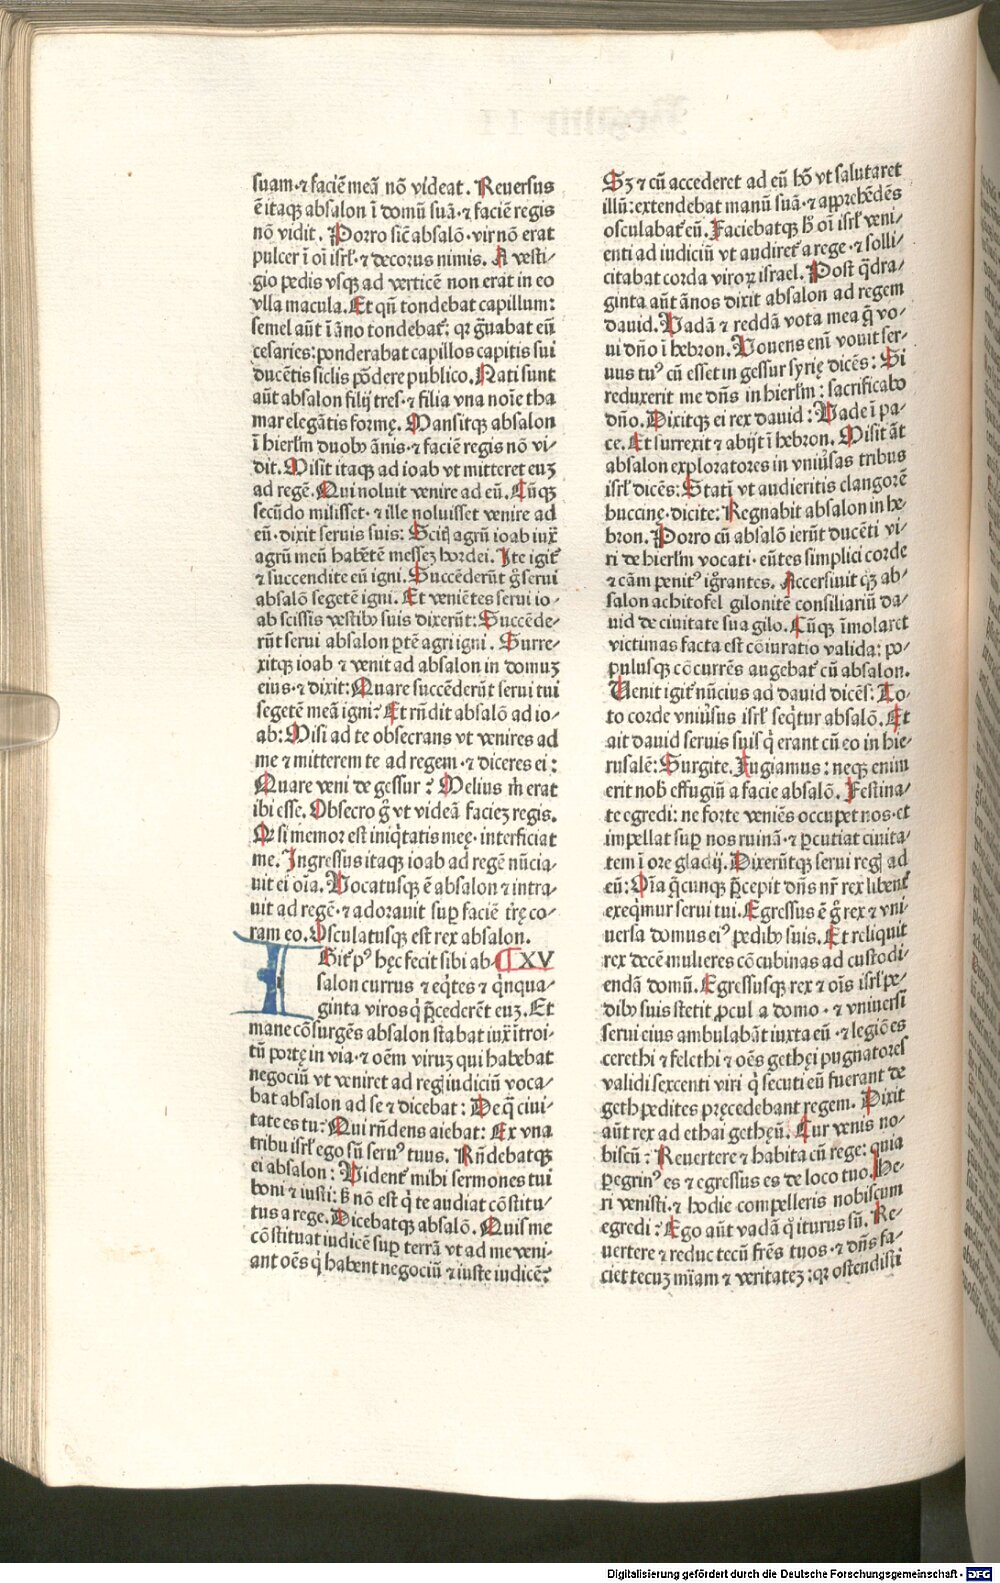 suam·⁊ faciē meā nō videat. Reuersus
ē itaqꝫ absalon ī domū suā·⁊ faciē regis
nō vidit. Porro sic̄ absalō·vir nō erat
pulcer ī oī isrl̓·⁊ decorus nimis. A vesti⸗
gio pedis vsqꝫ ad verticē non erat in eo
vlla macula. Et qn̄ tondebat capillum:
semel aūt ī āno tondebat᷑: qꝛ g̃uabat eū
cesaries: ponderabat capillos capitis sui
ducētis siclis pōdere publico. Nati sunt
aūt absalon filij tres·⁊ filia vna noīe tha
mar elegātis formę. Mansitqꝫ absalon
ī hierl̓m duobꝰ ānis·⁊ faciē regis nō vi⸗
dit. Misit itaqꝫ ad ioab vt mitteret euꝫ
ad regē. Qui noluit venire ad eū. Cūqꝫ
secūdo misisset·⁊ ille noluisset venire ad
eū·dixit seruis suis: Scitꝭ agrū ioab iux̄
agrū meū habētē messeꝫ hordei. Ite igit᷑
⁊ succendite eū igni. Succēderūt g̊ serui
absalō segetē igni. Et veniētes serui io⸗
ab scissis vestibꝰ suis dixerūt: Succēde⸗
rūt serui absalon ꝑtē agri igni. Surre⸗
xitqꝫ ioab ⁊ venit ad absalon in domuꝫ
eius·⁊ dixit: Quare succēderūt serui tui
segetē meā igni? Et rn̄dit absalō ad io⸗
ab: Misi ad te obsecrans vt venires ad
me ⁊ mitterem te ad regem·⁊ diceres ei:
Quare veni de gessur? Melius m̄ erat
ibi esse. Obsecro g̊ vt videā facieꝫ regis.
Qꝛ si memor est iniq̇tatis meę·interficiat
me. Ingressus itaqꝫ ioab ad regē nūcia⸗
uit ei oīa. Uocatusqꝫ ē absalon ⁊ intra⸗
uit ad regē·⁊ adorauit suꝑ faciē tr̄ę co⸗
ram eo. Osculatusqꝫ est rex absalon.
IGit᷑ pꝰ hęc fecit sibi ab⸗ XV
salon currus ⁊ eq̇tes ⁊ q̇nqua⸗
ginta viros q̇ p̄cederēt euꝫ. Et
mane cōsurgēs absalon stabat iux̄ ītroi⸗
tū portę in via·⁊ oēm viruꝫ qui habebat
negociū vt veniret ad regꝭ iudiciū voca⸗
bat absalon ad se ⁊ dicebat: De q̄ ciui⸗
tate es tu? Qui rn̄dens aiebat: Ex vna
tribu isrl̓ ego sū seruꝰ tuus. Rn̄debatqꝫ
ei absalon: Uident᷑ mihi sermones tui
boni ⁊ iusti: sꝫ nō est q̇ te audiat cōstitu⸗
tus a rege. Dicebatqꝫ absalō. Quis me
cōstituat iudicē suꝑ terrā vt ad me veni⸗
ant oēs q̇ habent negociū ⁊ iuste iudicē?
Sꝫ ⁊ cū accederet ad eū hō vt salutaret
illū: extendebat manū suā·⁊ apprehēdēs
osculabat᷑ eū. Faciebatqꝫ h̓ oī isrl̓ veni⸗
enti ad iudiciū vt audiret᷑ a rege·⁊ solli⸗
citabat corda viroꝝ israel. Post q̄dra⸗
ginta aūt ānos dixit absalon ad regem
dauid. Uadā ⁊ reddā vota mea q̄ vo⸗
ui dn̄o ī hebron. Uouens enī vouit ser⸗
uus tuꝰ cū esset in gessur syrię dicēs: Si
reduxerit me dn̄s in hierl̓m: sacrificabo
dn̄o. Dixitqꝫ ei rex dauid: Uade ī pa⸗
ce. Et surrexit ⁊ abijt ī hebron. Misit āt
absalon exploratores in vniu̓sas tribus
isrl̓ dicēs: Statī vt audieritis clangorē
buccinę·dicite: Regnabit absalon in he⸗
bron. Porro cū absalō ierūt ducēti vi⸗
ri de hierl̓m vocati·eūtes simplici corde
⁊ cām penitꝰ ig̊rantes. Accersiuit qꝫ ab⸗
salon achitofel gilonitē consiliariū da⸗
uid de ciuitate sua gilo. Cūqꝫ īmolaret
victimas facta est cōiuratio valida: po⸗
pulusqꝫ cōcurrēs augebat᷑ cū absalon.
Uenit igit᷑ nūcius ad dauid dicēs: To⸗
to corde vniu̓sus isrl̓ seq̇tur absalō. Et
ait dauid seruis suis q̇ erant cū eo in hie⸗
rusalē: Surgite. Fugiamus: neqꝫ enim
erit nob̓ effugiū a facie absalō. Festina⸗
te egredi: ne forte veniēs occupet nos·et
impellat suꝑ nos ruinā·⁊ ꝑcutiat ciuita⸗
tem ī ore gladij. Dixerūtqꝫ serui regꝭ ad
eū: Oīa q̄cunqꝫ p̄cepit dn̄s nr̄ rex libent᷑
exeq̇mur serui tui. Egressus ē g̊ rex ⁊ vni⸗
uersa domus eiꝰ pedibꝰ suis. Et reliquit
rex decē mulieres cōcubinas ad custodi⸗
endā domū. Egressusqꝫ rex ⁊ oīs isrl̓ pe⸗
dibꝰ suis stetit ꝓcul a domo·⁊ vniuersi
serui eius ambulabāt iuxta eū·⁊ legiōes
cerethi ⁊ felethi ⁊ oēs gethęi pugnatores
validi sexcenti viri q̇ secuti eū fuerant de
geth pedites pręcedebant regem. Dixit
aūt rex ad ethai gethęū. Cur venis no⸗
biscū? Reuertere ⁊ habita cū rege: quia
ꝑegrinꝰ es ⁊ egressus es de loco tuo. He⸗
ri venisti·⁊ hodie compelleris nobiscum
egredi? Ego aūt vadā q̊ iturus sū. Re⸗
uertere ⁊ reduc tecū fr̄es tuos·⁊ dn̄s fa⸗
ciet tecuꝫ mīam ⁊ veritateꝫ: qꝛ ostendisti
Digitalisierung gefördert durch die Deutsche Forschungsgemeinschaft - DFG